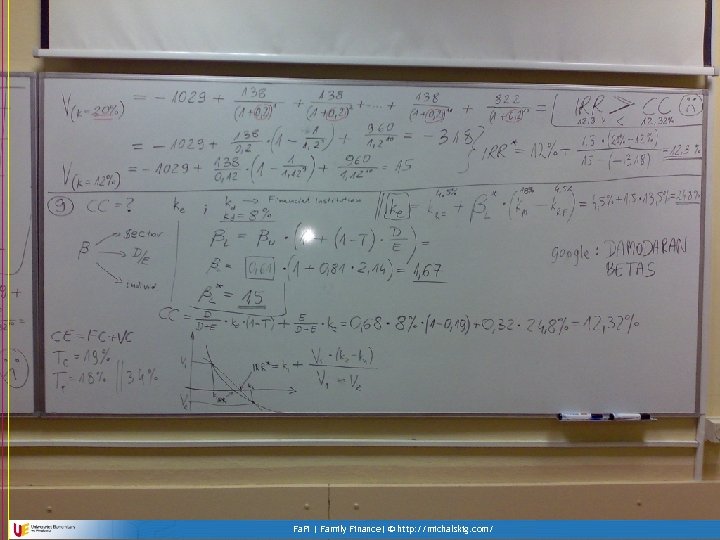 V(k=20%) = -1029 + 138/(1+0,2)¹ + 138/(1+0,2)² + ... + 138/(1+0,2)¹⁰ + 822/(1+0,2)¹⁰ = IRR > CC
12,3% < 12,32%
= -1029 + 138/0,2 · (1 - 1/1,2⁹) + 960/1,2¹⁰ = -318
V(k=12%) = -1029 + 138/0,12 · (1 - 1/1,12⁹) + 960/1,12¹⁰ = 15
; IRR* = 12% + 15 · (20% - 12%)/15 - (-318) = 12,3%
9) CC = ? ke ; kd → Financial institution
kd = 8%
ke = kRF + βL* · (kM - kRF) = 4,5% + 1,5 · 13,5% = 24,8%
4,5% 18% 4,5%
β → sector
→ D/E
βL = βU · (1 + (1-T) · D/E) =
βL = 0,61 · (1 + 0,81 · 2,14) = 1,67
βL* = 1,5
Google: DAMODARAN
BETAS
CC = D/D+E · kd · (1-T) + E/D+E · ke = 0,68 · 8% · (1-0,19) + 0,32 · 24,8% = 12,32%
CE = FC+VC
Tc = 19%
Te = 18% || 34%
V₁
k₁
V₂
IRR* = k₁ + V₁ · (k₂-k₁)/V₁ - V₂
UE Uniwersytet Ekonomiczny
we Wrocławiu
FaFi | Family Finance| © http://michalskig.com/